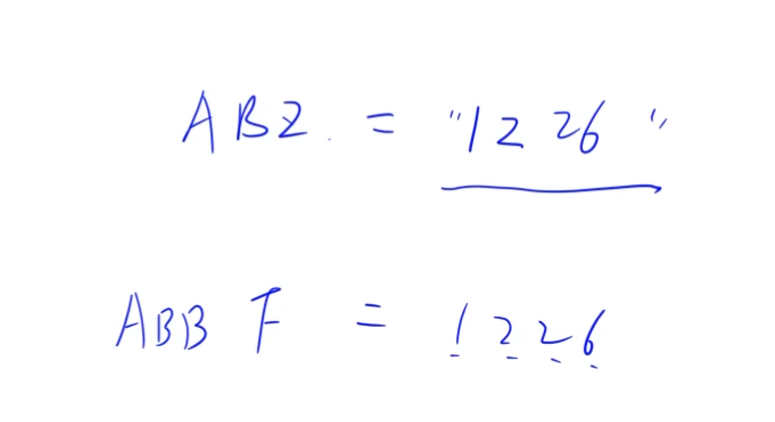 ABZ = "1226"
ABBF = 1226